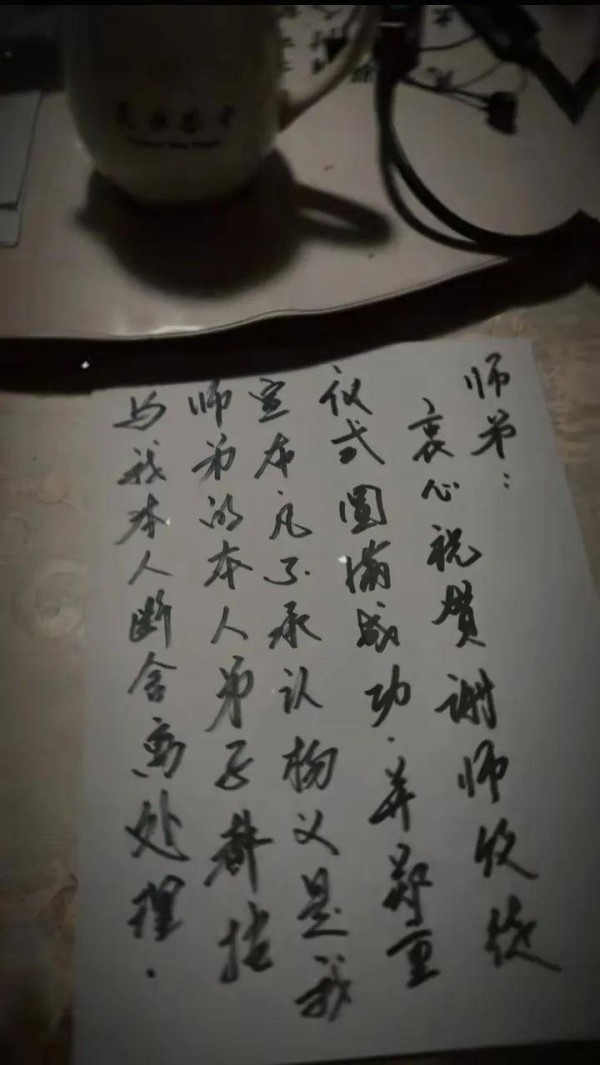 师弟：
衷心祝贺谢师收徒
仪式圆满成功．并郑重
宣布凡了承认杨义是我
师弟的本人弟子都按
与我本人断舍离处理．